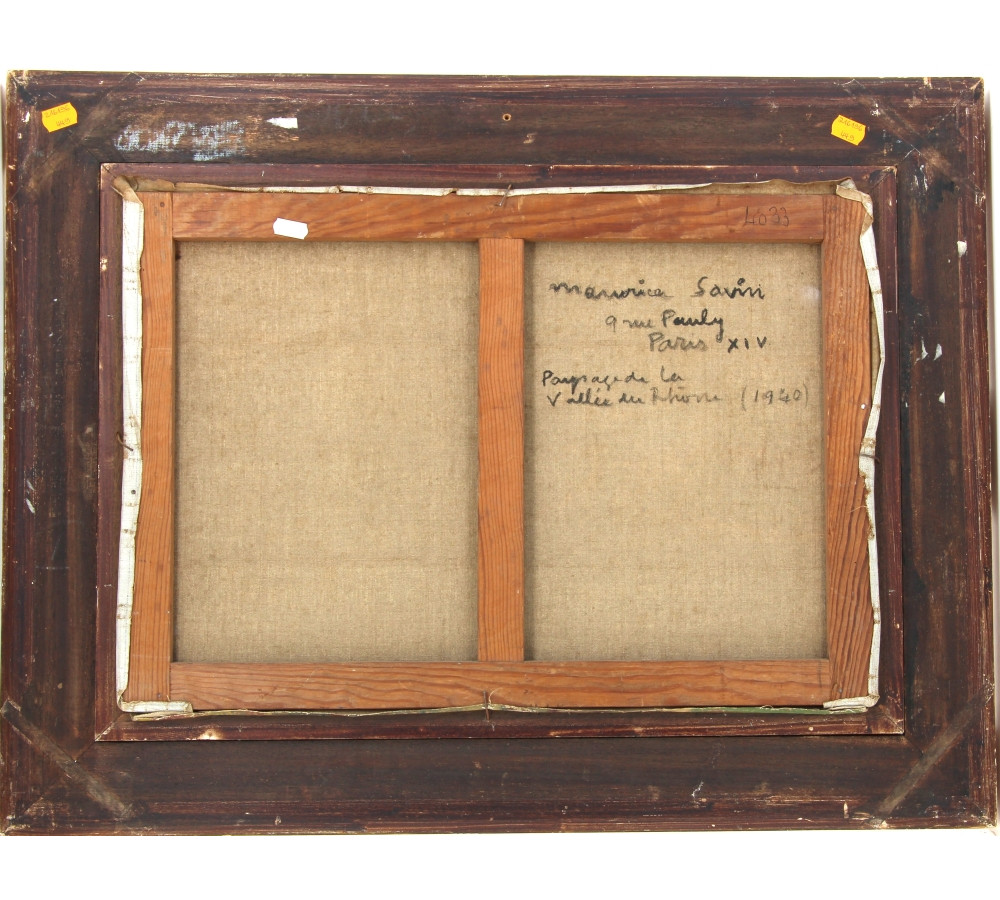 4033
Maurice Savin
9 rue Pauly
Paris XIV
Paysage de la
Vallée du Rhône (1940)